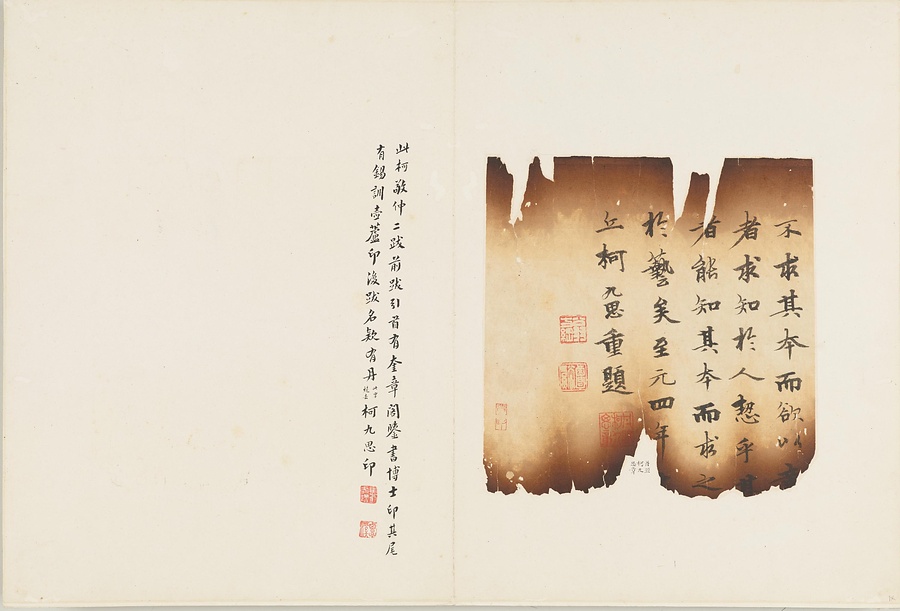 不求其本而欲以
者求知於人愬乎其
者能知其本而求之
於藝矣至元四年
丘柯九思重題
此柯敬仲二跋前跋引首有奎章閣鑒書博士印其尾
有錫訓壺蘆印後跋名款有丹柯九思印